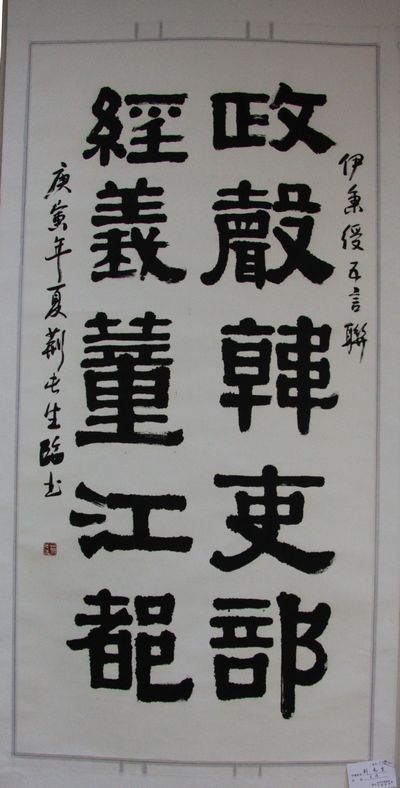 伊秉绶五言联
政聲韓吏部
經義董江都
庚寅年夏荊長生臨書